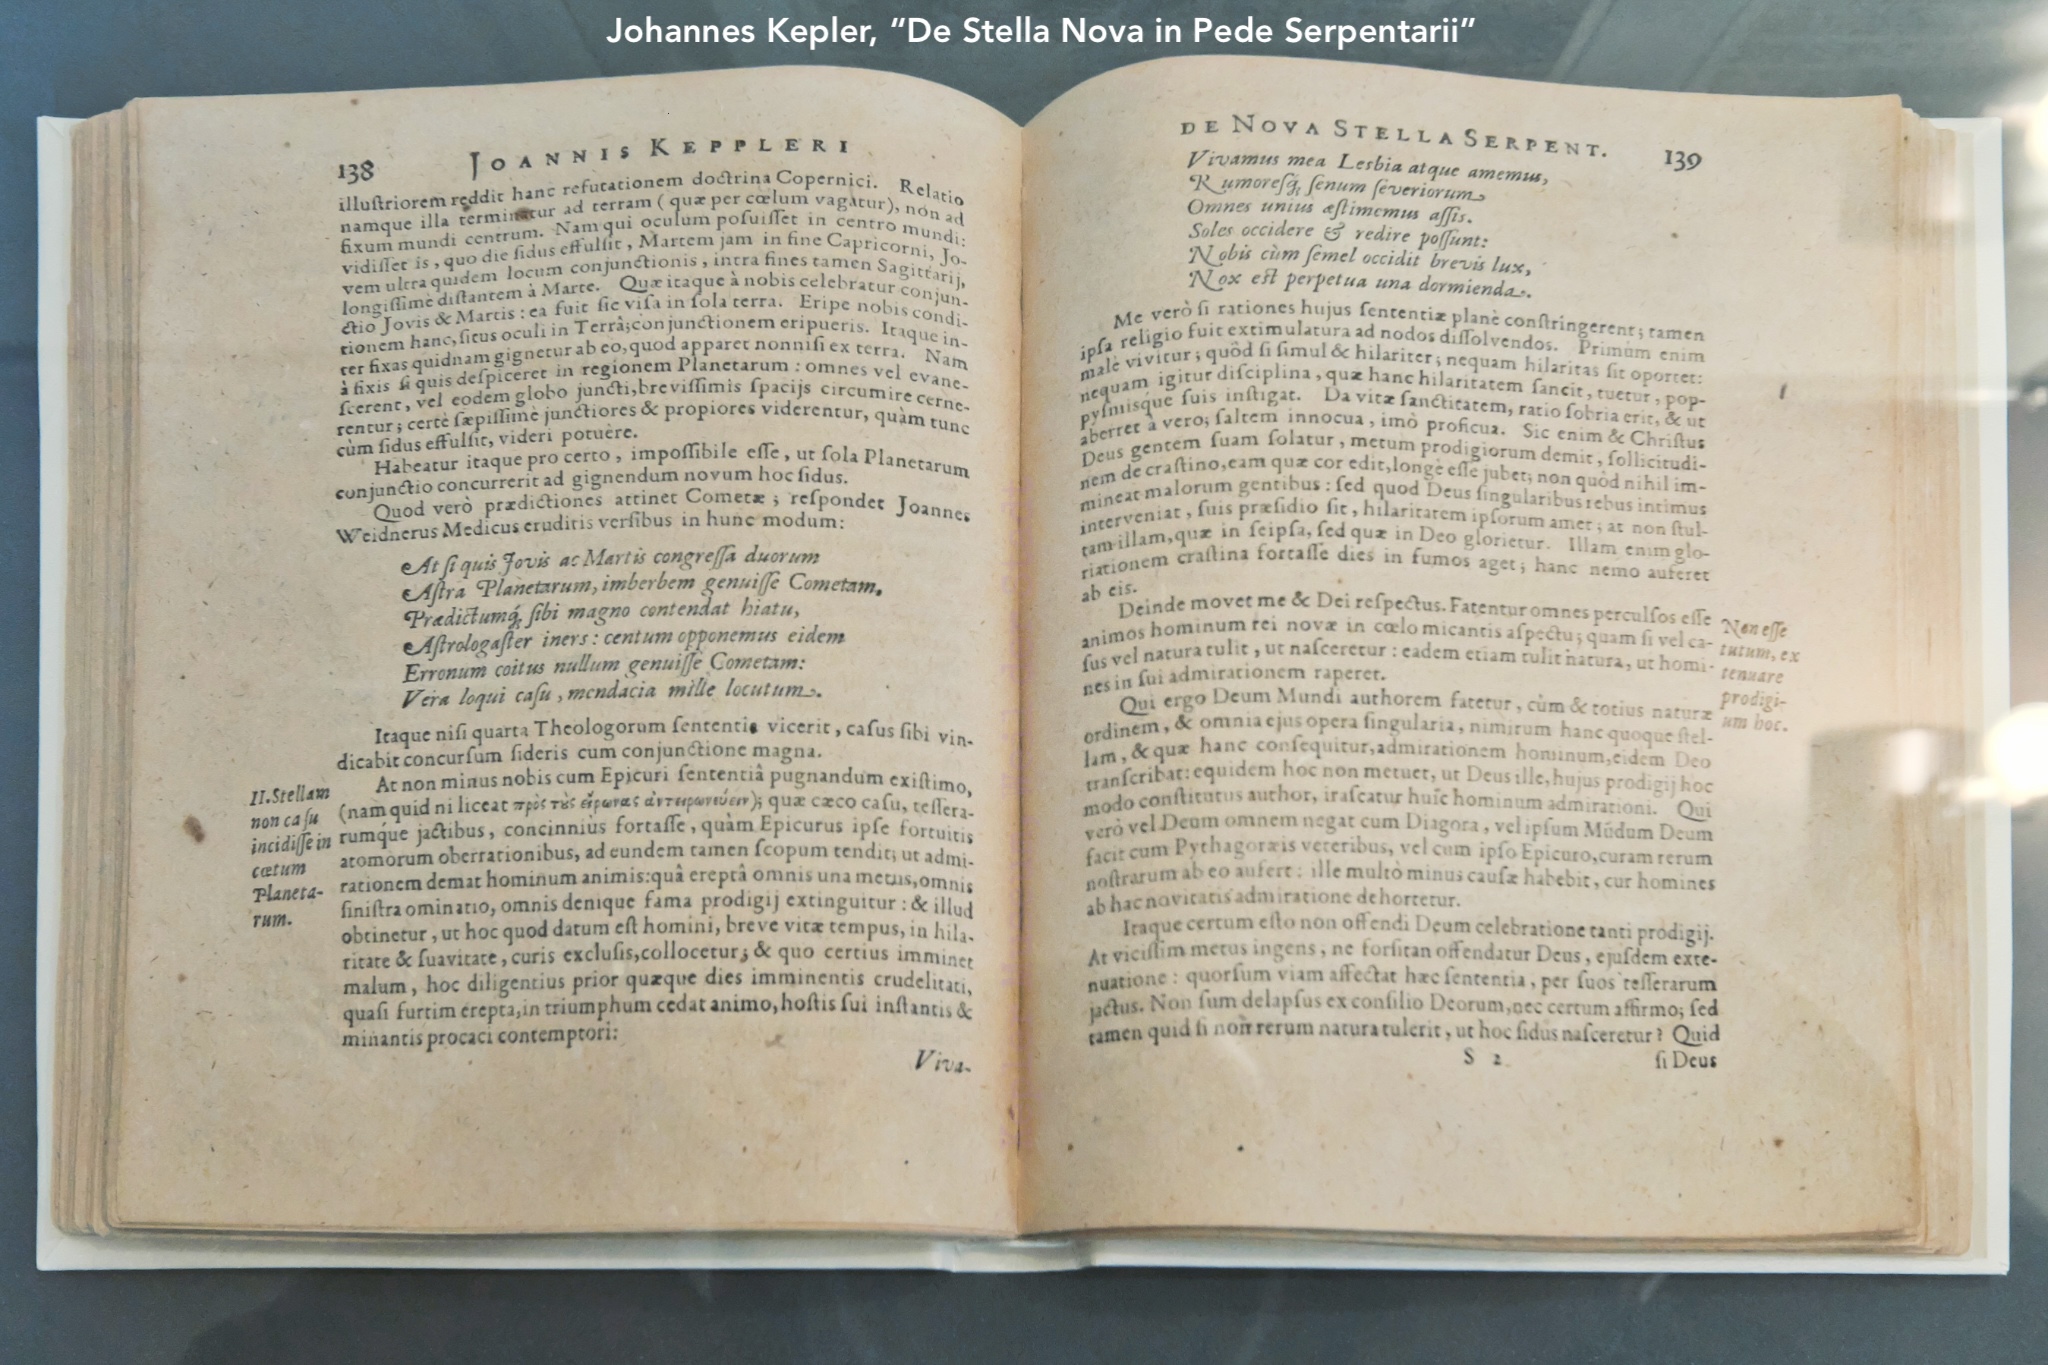 Johannes Kepler, “De Stella Nova in Pede Serpentarii”
138 JOANNIS KEPPLERI
illuſtriorem reddit hanc refutationem doctrina Copernici. Relatio
namque illa terminatur ad terram (quæ per cœlum vagatur), non ad
fixum mundi centrum. Nam qui oculum poſuiſſet in centro mundi:
vidiſſet is, quo die ſidus effulſit, Martem jam in fine Capricorni, Jo-
vem ultra quidem locum conjunctionis, intra fines tamen Sagittarij,
longiſſimè diſtantem à Marte. Quæ itaque à nobis celebratur conjun-
ctio Jovis & Martis: ea fuit ſic viſa in ſola terra. Eripe nobis condi-
tionem hanc, ſitus oculi in Terrâ; conjunctionem eripueris. Itaque in-
ter fixas quidnam gignetur ab eo, quod apparet nonniſi ex terra. Nam
à fixis ſi quis deſpiceret in regionem Planetarum: omnes vel evane-
ſcerent, vel eodem globo juncti, breviſſimis ſpacijs circumire cerne-
rentur; certè ſæpiſſimè junctiores & propiores viderentur, quàm tunc
cùm ſidus effulſit, videri potuêre.
Habeatur itaque pro certo, impoſſibile eſſe, ut ſola Planetarum
conjunctio concurrerit ad gignendum novum hoc ſidus.
Quod verò prædictiones attinet Cometæ; reſpondet Joannes
Weidnerus Medicus eruditis verſibus in hunc modum:
At ſi quis Jovis ac Martis congreſſa duorum
Aſtra Planetarum, imberbem genuiſſe Cometam,
Prædictumq́; ſibi magno contendat hiatu,
Aſtrologaſter iners: centum opponemus eidem
Erronum coitus nullum genuiſſe Cometam:
Vera loqui caſu, mendacia mille locutum.
Itaque niſi quarta Theologorum ſententia vicerit, caſus ſibi vin-
dicabit concurſum ſideris cum conjunctione magna.
II. Stellam
non caſu
incidiſſe in
cœtum
Planeta-
rum.
At non minus nobis cum Epicuri ſententiâ pugnandum exiſtimo,
(nam quid ni liceat πρὸς τοὺς εἴρωνας ἀντειρωνεύειν); quæ cæco caſu, teſſera-
rumque jactibus, concinniùs fortaſſe, quàm Epicurus ipſe fortuitis
atomorum oberrationibus, ad eundem tamen ſcopum tendit; ut admi-
rationem demat hominum animis: quâ ereptâ omnis una metus, omnis
ſiniſtra ominatio, omnis denique fama prodigij extinguitur: & illud
obtinetur, ut hoc quod datum eſt homini, breve vitæ tempus, in hila-
ritate & ſuavitate, curis excluſis, collocetur; & quo certius imminet
malum, hoc diligentius prior quæque dies imminentis crudelitati,
quaſi furtim erepta, in triumphum cedat animo, hoſtis ſui inſtantis &
minantis procaci contemptori:
Viva-
DE NOVA STELLA SERPENT. 139
Vivamus mea Lesbia atque amemus,
Rumoreſq́; ſenum ſeveriorum
Omnes unius æſtimemus aſſis.
Soles occidere & redire poſſunt:
Nobis cùm ſemel occidit brevis lux,
Nox eſt perpetua una dormienda.
Me verò ſi rationes hujus ſententiæ planè conſtringerent; tamen
ipſa religio fuit extimulatura ad nodos diſſolvendos. Primùm enim
malè vivitur; quòd ſi ſimul & hilariter; nequam hilaritas ſit oportet:
nequam igitur diſciplina, quæ hanc hilaritatem ſancit, tuetur, pop-
pyſmisque ſuis inſtigat. Da vitæ ſanctitatem, ratio ſobria erit, & ut
aberret à vero; ſaltem innocua, imò proficua. Sic enim & Chriſtus
Deus gentem ſuam ſolatur, metum prodigiorum demit, ſollicitudi-
nem de craſtino, eam quæ cor edit, longè eſſe jubet; non quòd nihil im-
mineat malorum gentibus: ſed quod Deus ſingularibus rebus intimus
interveniat, ſuis præſidio ſit, hilaritatem ipſorum amet; at non ſtul-
tam illam, quæ in ſeipſa, ſed quæ in Deo glorietur. Illam enim glo-
riationem craſtina fortaſſe dies in fumos aget; hanc nemo auferet
ab eis.
Deinde movet me & Dei reſpectus. Fatentur omnes perculſos eſſe
animos hominum rei novæ in cœlo micantis aſpectu; quam ſi vel ca-
ſus vel natura tulit, ut naſceretur: eadem etiam tulit natura, ut homi-
nes in ſui admirationem raperet.
Non eſſe
tutum, ex
tenuare
prodigi-
um hoc.
Qui ergo Deum Mundi authorem fatetur, cùm & totius naturæ
ordinem, & omnia ejus opera ſingularia, nimirum hanc quoque ſtel-
lam, & quæ hanc conſequitur, admirationem hominum, eidem Deo
tranſcribat: equidem hoc non metuet, ut Deus ille, hujus prodigij hoc
modo conſtitutus author, iraſcatur huic hominum admirationi. Qui
verò vel Deum omnem negat cum Diagora, vel ipſum Mũdum Deum
facit cum Pythagoræis veteribus, vel cum ipſo Epicuro, curam rerum
noſtrarum ab eo aufert: ille multò minus cauſæ habebit, cur homines
ab hac novitatis admiratione dehortetur.
Itaque certum eſto non offendi Deum celebratione tanti prodigij.
At viciſſim metus ingens, ne forſitan offendatur Deus, ejuſdem exte-
nuatione: quorſum viam affectat hæc ſententia, per ſuos teſſerarum
jactus. Non ſum delapſus ex conſilio Deorum, nec certum affirmo; ſed
tamen quid ſi non rerum natura tulerit, ut hoc ſidus naſceretur? Quid
S 2 ſi Deus